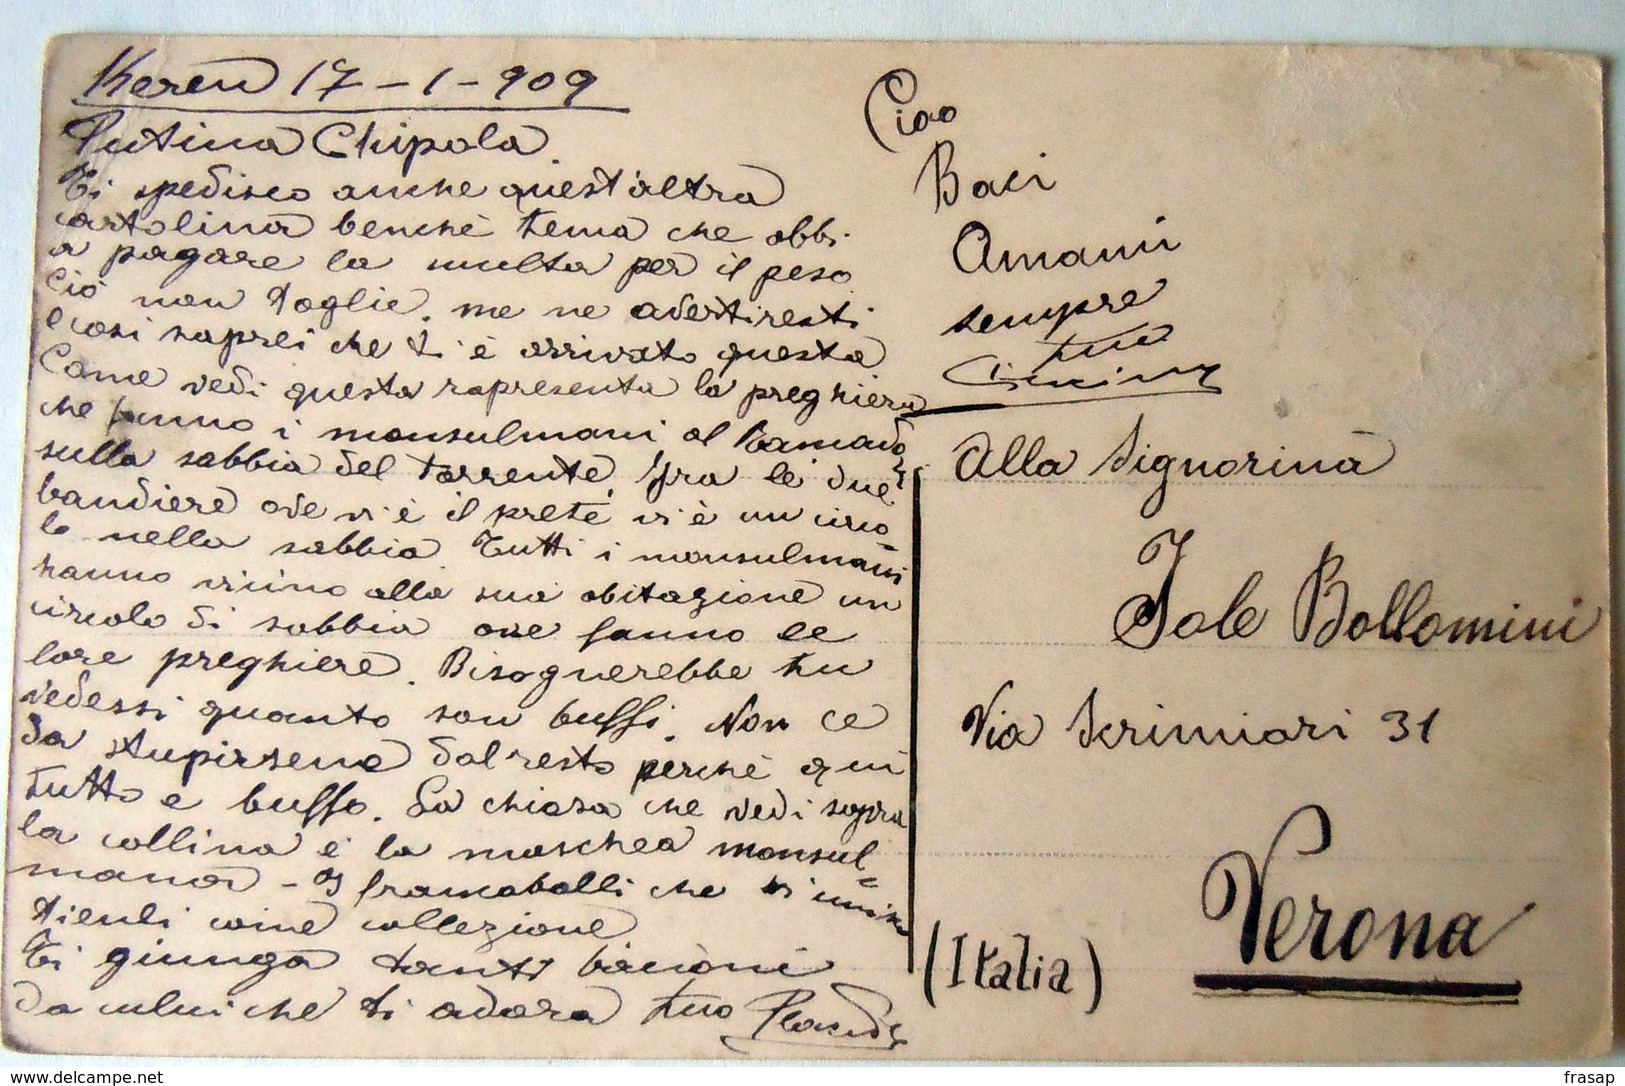 Keren 17-1-909
Putina Chipola.
Ti spedisco anche quest'altra
cartolina benchè tema che abbi
a pagare la multa per il peso
Ciò non toglie. me ne avertiresti
e così saprei che ti è arrivato questa
Come vedi questa rapresenta la preghiera
che fanno i monsulmani al Ramadan
sulla sabbia del torrente. Fra le due
bandiere ove vi è il prete vi è un circo-
lo nella sabbia Tutti i monsulmani
hanno vicino alla sua abitazione un
circolo di sabbia ove fanno le
lore preghiere. Bisognerebbe tu
vedessi quanto son buffi. Non ce
da stupirsene dal resto perchè qui
tutto e buffo. La chiesa che vedi sopra
la collina è la moschea monsul=
mana - I francobolli che ti
tienli come collezione
Ti giunga tanti bacioni
da colui che ti adora tuo
Ciao
Baci
Amami
sempre
tuo
Alla Signorina
Iole Bollomini
Via Scrimiari 31
Verona
(Italia)
www.delcampe.net
frasap